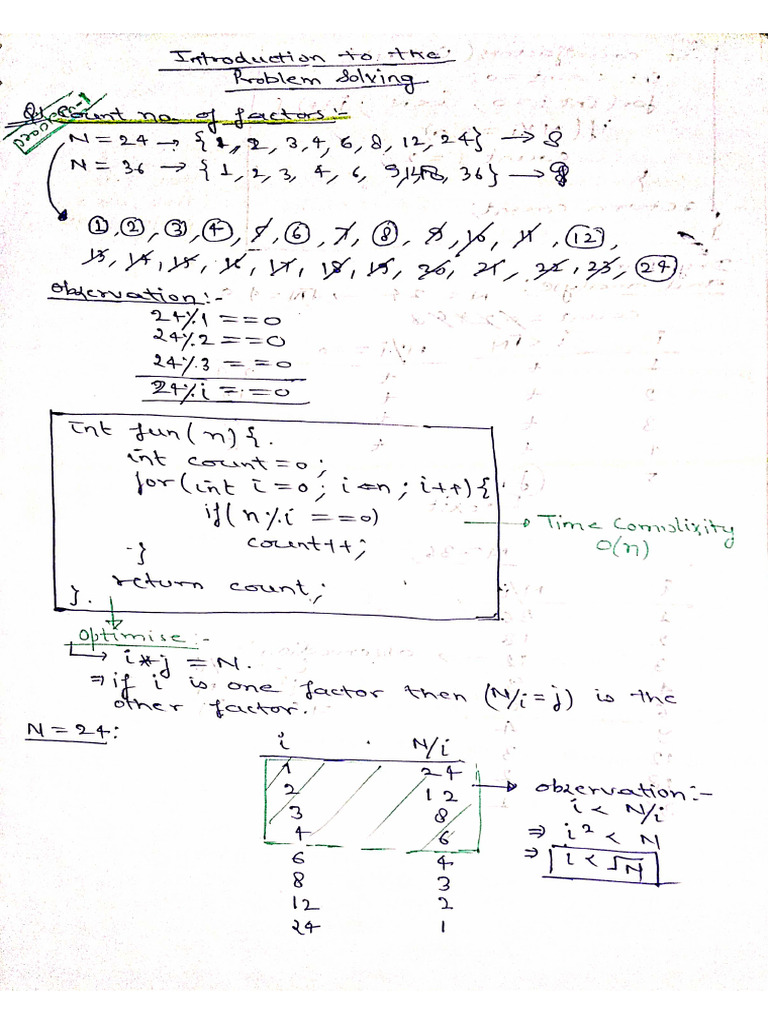 Introduction to the
Problem Solving
Q1 Count no. of factors :-
N = 24 → {1, 2, 3, 4, 6, 8, 12, 24} → 8
N = 36 → {1, 2, 3, 4, 6, 9, 12, 18, 36} → 9
1, 2, 3, 4, 5, 6, 7, 8, 9, 10, 11, 12,
13, 14, 15, 16, 17, 18, 19, 20, 21, 22, 23, 24
Observation :-
24%1 == 0
24%2 == 0
24%3 == 0
24%i == 0
int fun(n) {
int count = 0;
for(int i = 0; i <= n; i++) {
if(n%i == 0)
count++;
}
return count;
}
→ Time Comlixity
O(n)
Optimise :-
→ i * j = N.
⇒ if i is one factor then (N/i = j) is the
other factor.
N = 24:
i N/i
1 24
2 12
3 8
4 6
6 4
8 3
12 2
24 1
→ Observation :-
i < N/i
⇒ i² < N
⇒ i < √N